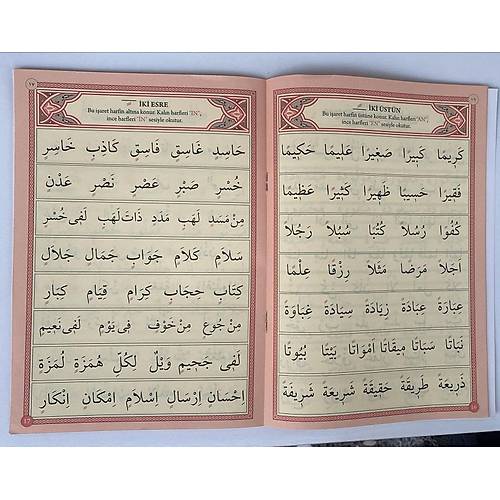 ١٦
ـً İKİ ÜSTÜN
Bu işaret harfin üstüne konur. Kalın harfleri "AN",
ince harfleri "EN" sesiyle okutur.
كَرِيمًا كَبِيرًا صَغِيرًا عَلِيمًا حَكِيمًا
فَقِيرًا حَسِيبًا ظَهِيرًا كَثِيرًا عَظِيمًا
كُفُوًا رُسُلًا كُتُبًا سُبُلًا رَجُلًا
اَجَلًا مَرَضًا مَثَلًا رِزْقًا عِلْمًا
عِبَارَةً عِبَادَةً زِيَادَةً سِيَادَةً غِبَاوَةً
نَبَاتًا سَبَاتًا مِيقَاتًا اَمْوَاتًا بَيْتًا بُيُوتًا
ذَرِيعَةً طَرِيقَةً حَقِيقَةً شَرِيعَةً شَرِيفَةً
16
١٧
ـٍ İKİ ESRE
Bu işaret harfin altına konur. Kalın harfleri "IN",
ince harfleri "İN" sesiyle okutur.
حَاسِدٍ غَاسِقٍ فَاسِقٍ كَاذِبٍ خَاسِرٍ
خُسْرٍ صَبْرٍ عَصْرٍ نَصْرٍ عَدْنٍ
مِنْ مَسَدٍ لَهَبٍ مَدَدٍ ذَاتَ لَهَبٍ لَفِى خُسْرٍ
سَلَامٍ كَلَامٍ جَوَابٍ جَمَالٍ جَلَالٍ
كِتَابٍ حِجَابٍ كِرَامٍ قِيَامٍ كِبَارٍ
مِنْ جُوعٍ مِنْ خَوْفٍ فِى يَوْمٍ لَفِى نَعِيمٍ
لَفِى جَحِيمٍ وَيْلٌ لِكُلِّ هُمَزَةٍ لُمَزَةٍ
اِحْسَانٍ اِرْسَالٍ اِسْلَامٍ اِمْكَانٍ اِنْكَارٍ
17